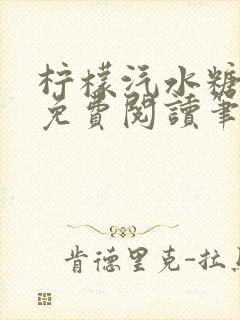 柠檬汽水糖
免費閱讀筆
肯德里克-拉